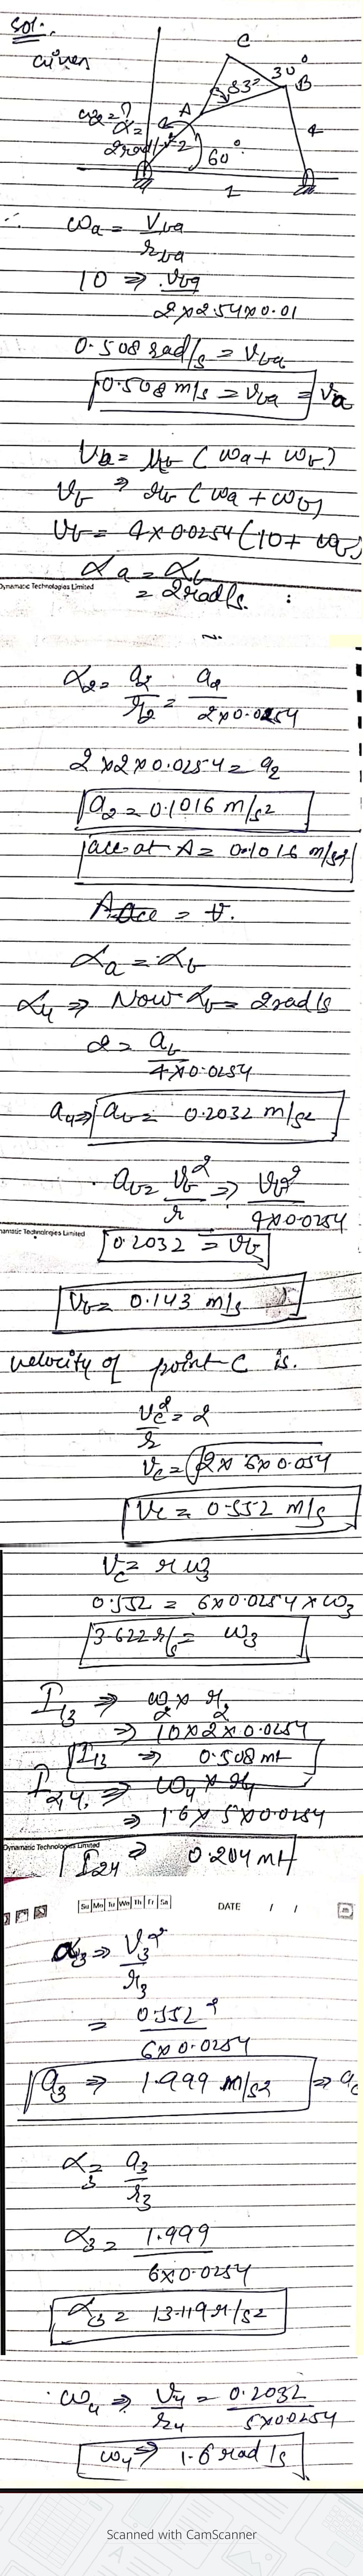 Sol:-
Given
C
30°
B
83°
A
ω2=?
α=
2rad/s²
2
4
60°
1
∴ ωa = Vba
rba
10 ⇒ Vba
2×2.54×0.01
0.508 rad/s = Vba
0.508 m/s = Vba = Va
Vb ⇒ rb (ωa + ωb)
Vb = 4×0.0254 (10+ ωb)
αa = αb
= 2rad/s.
Dynamatic Technologies Limited
α2 = a2 = a2
r2 2×0.0254
2×2×0.0254 = a2
a2 = 0.1016 m/s2
acc. at A = 0.1016 m/s2
αa = αb
α4 ⇒ Now αb = 2rad/s
2 = ab
4×0.0254
a4⇒ ab = 0.2032 m/s2
ab = Vb² ⇒ Vb²
r 4×0.0254
namatic Technologies Limited
0.2032 = Vb
Vb = 0.143 m/s
velocity of point C is.
Vc² = 2
r
Vc = √2×6×0.054
Vc = 0.552 m/s
Vc = r ω3
0.552 = 6×0.0254×ω3
3.622 r/s = ω3
I13 ⇒ ω2 × r2
⇒ 10×2×0.0254
I13 ⇒ 0.508 mt
I24 ⇒ ω4 × r4
⇒ 1.6 × 5×0.0254
Dynamatic Technologies Limited
I24 ⇒ 0.204 mt
Su Mo Tu We Th Fr Sa
DATE / /
a3 ⇒ V3²
r3
= 0.552²
6×0.0254
a3 ⇒ 1.999 m/s2 ⇒ ac
α3 = a3
r3
α3 = 1.999
6×0.0254
α3 = 13.119 r/s2
ω4 ⇒ V4 = 0.2032
r4 5×0.0254
ω4 ⇒ 1.6 rad/s
Scanned with CamScanner